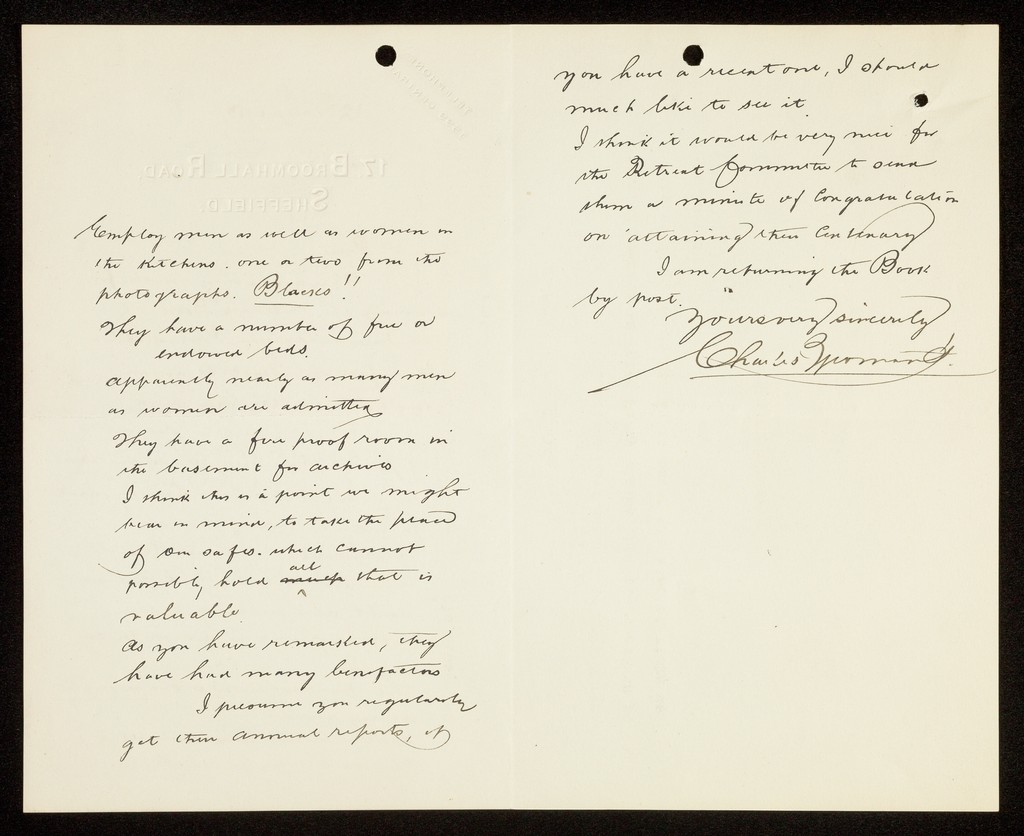 17 BROOMHALL ROAD,
SHEFFIELD.
Employ men as well as women in
the Kitchens. one or two from the
photographs. Blacks!!
They have a number of free or
endowed beds.
apparently nearly as many men
as women are admitted
They have a fire proof room in
the basement for archives
I think this is a point we might
bear in mind, to take the place
of our safes. which cannot
possibly hold all that is
valuable.
As you have remarked, they
have had many benefactors
I presume you regularly
get their annual reports, if
you have a recent one, I should
much like to see it
I think it would be very nice for
the Retreat Committee to send
them a minute of Congratulation
on attaining their Centenary
I am returning the Book
by post.
Yours very sincerely
Charles